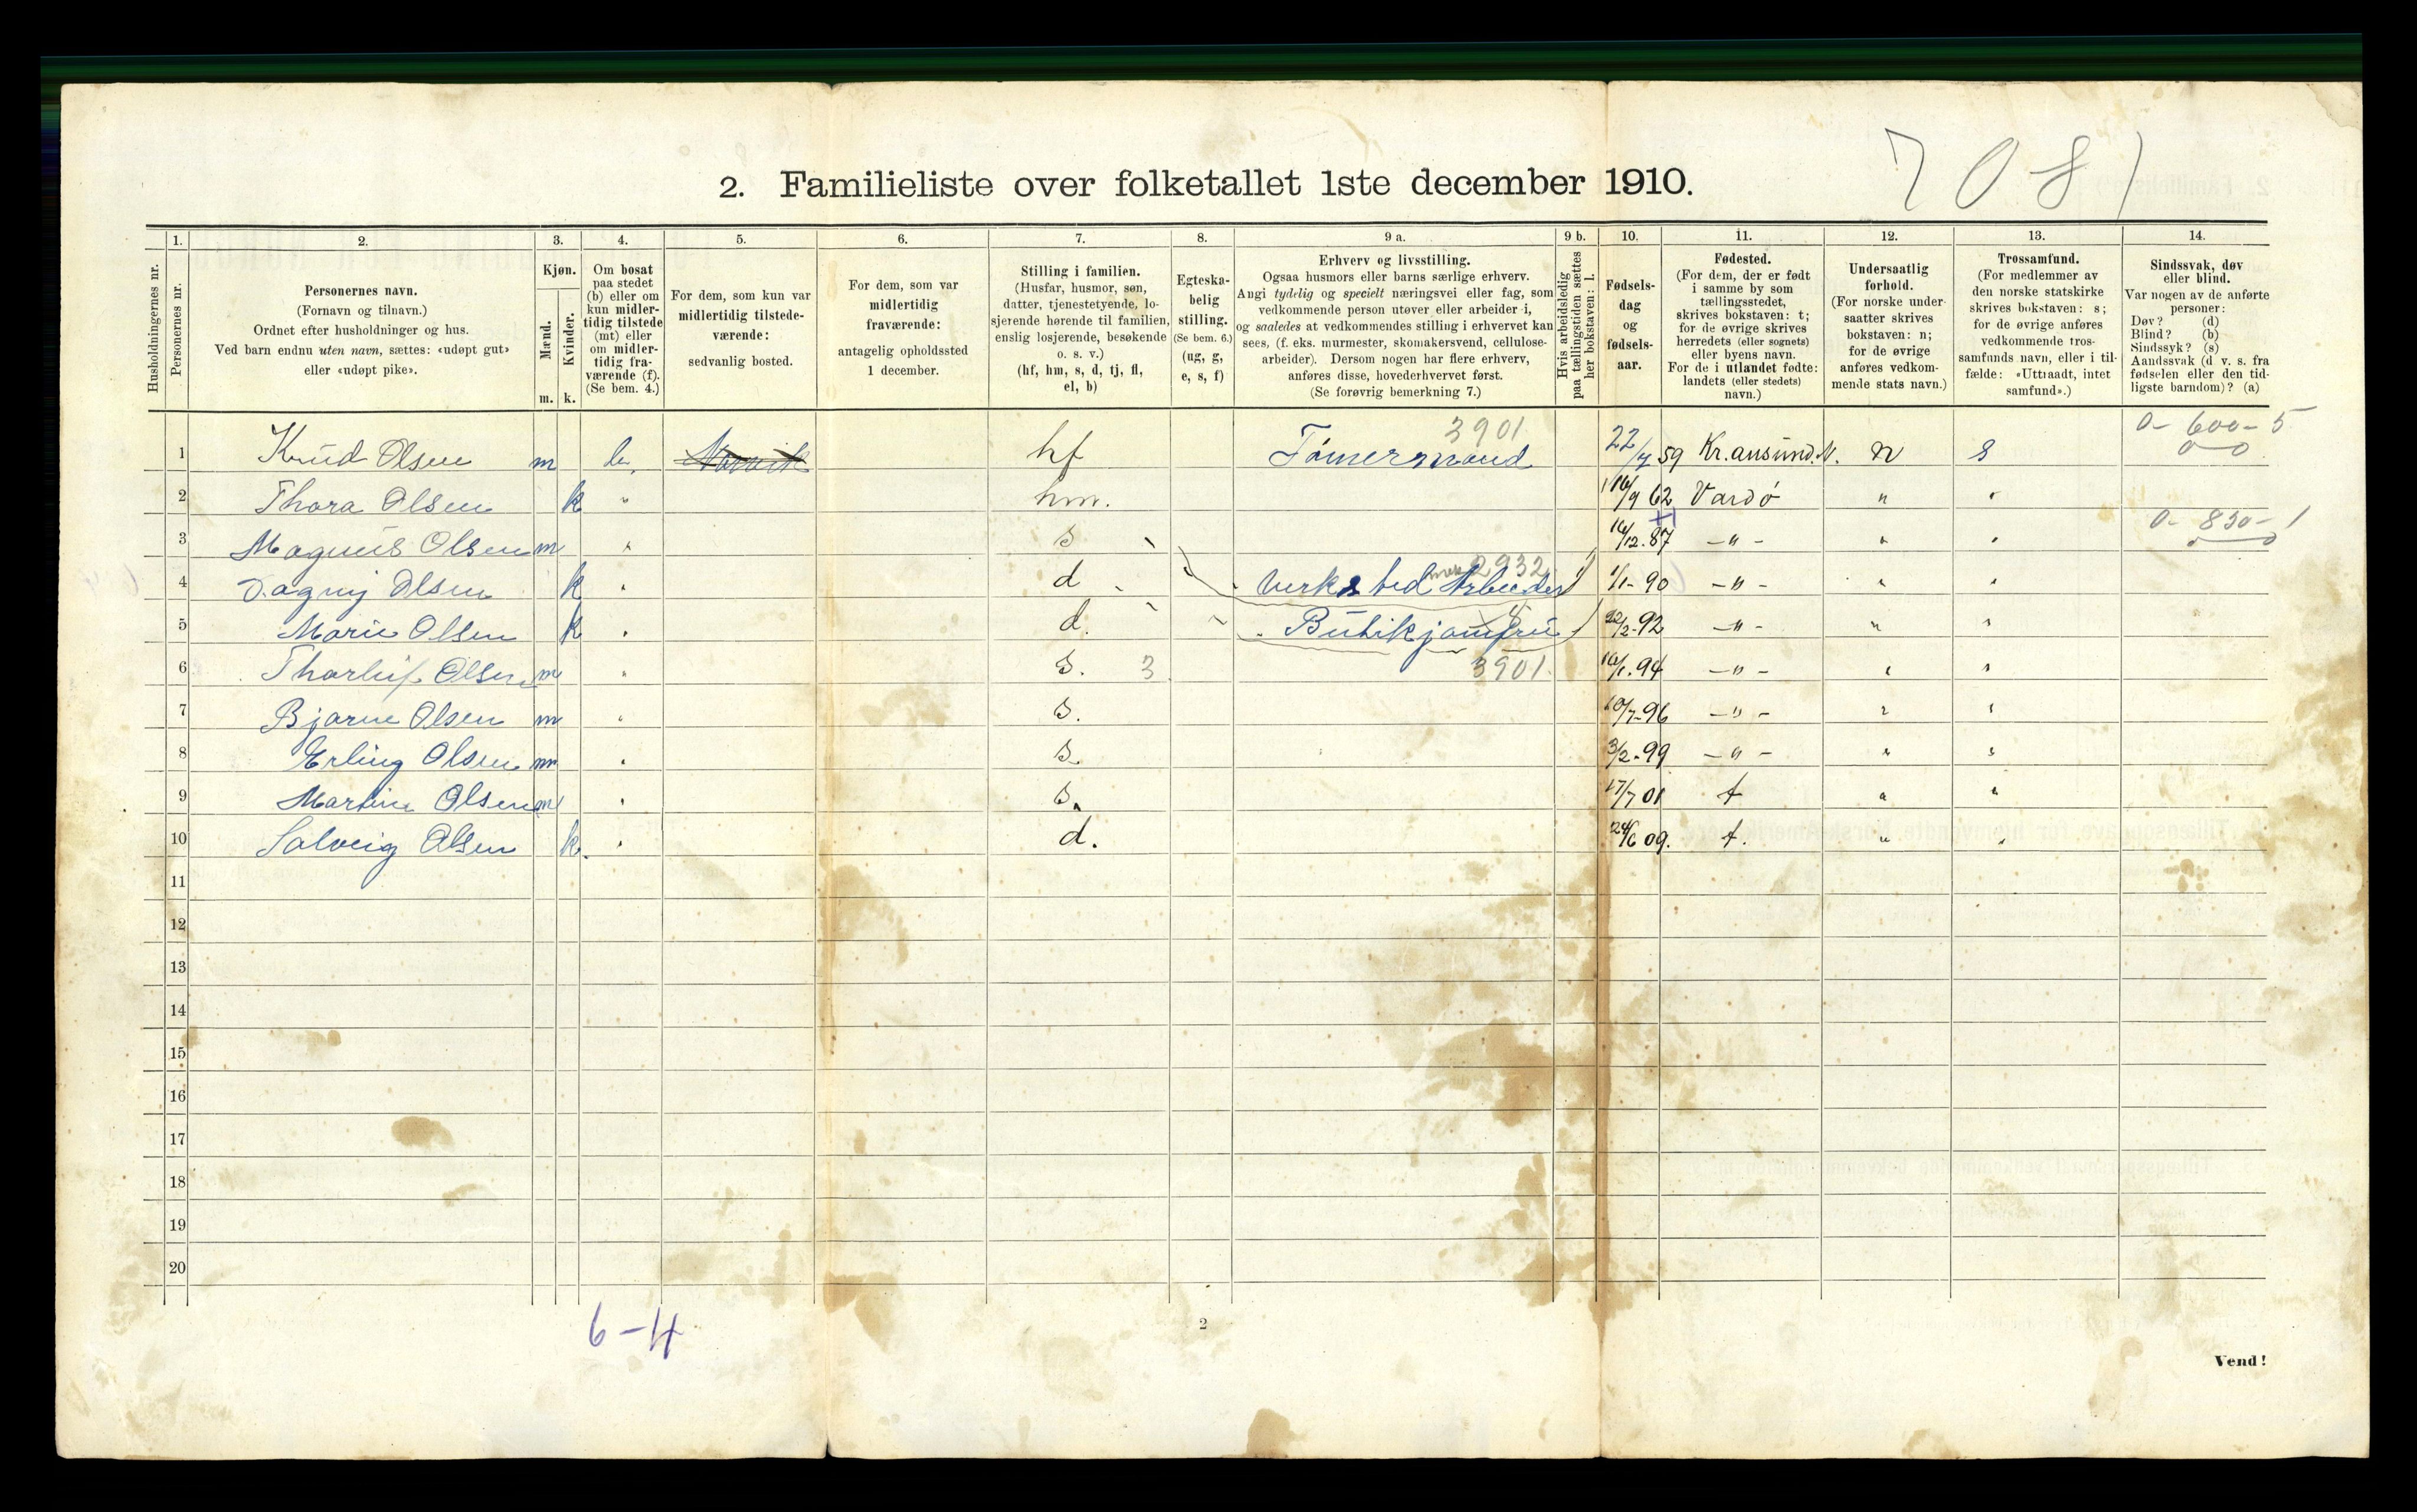 7081
2. Familieliste over folketallet 1ste december 1910.
1. 2. 3. 4. 5. 6. 7. 8. 9 a. 9 b. 10. 11. 12. 13. 14.
Husholdningernes nr.
Personernes nr.
Personernes navn.
(Fornavn og tilnavn.)
Ordnet efter husholdninger og hus.
Ved barn endnu uten navn, sættes: «udøpt gut»
eller «udøpt pike».
Kjøn.
Mænd.
Kvinder.
m. k.
Om bosat
paa stedet
(b) eller om
kun midler-
tidig tilstede
(mt) eller
om midler-
tidig fra-
værende (f).
(Se bem. 4.)
For dem, som kun var
midlertidig tilstede-
værende:
sedvanlig bosted.
For dem, som var
midlertidig
fraværende:
antagelig opholdssted
1 december.
Stilling i familien.
(Husfar, husmor, søn,
datter, tjenestetyende, lo-
sjerende hørende til familien,
enslig losjerende, besøkende
o. s. v.)
(hf, hm, s, d, tj, fl,
el, b)
Egteska-
belig
stilling.
(Se bem. 6.)
(ug, g,
e, s, f)
Erhverv og livsstilling.
Ogsaa husmors eller barns særlige erhverv.
Angi tydelig og specielt næringsvei eller fag, som
vedkommende person utøver eller arbeider i,
og saaledes at vedkommendes stilling i erhvervet kan
sees, (f. eks. murmester, skomakersvend, cellulose-
arbeider). Dersom nogen har flere erhverv,
anføres disse, hovederhvervet først.
(Se forøvrig bemerkning 7.)
Hvis arbeidsledig
paa tællingstiden sættes
her bokstaven: l.
Fødsels-
dag
og
fødsels-
aar.
Fødested.
(For dem, der er født
i samme by som
tællingsstedet,
skrives bokstaven: t;
for de øvrige skrives
herredets (eller sognets)
eller byens navn.
For de i utlandet fødte:
landets (eller stedets)
navn.)
Undersaatlig
forhold.
(For norske under-
saatter skrives
bokstaven: n;
for de øvrige
anføres vedkom-
mende stats navn.)
Trossamfund.
(For medlemmer av
den norske statskirke
skrives bokstaven: s;
for de øvrige anføres
vedkommende tros-
samfunds navn, eller i til-
fælde: «Uttraadt, intet
samfund».)
Sindssvak, døv
eller blind.
Var nogen av de anførte
personer:
Døv? (d)
Blind? (b)
Sindssyk? (s)
Aandssvak (d v. s. fra
fødselen eller den tid-
ligste barndom)? (a)
3901 0-600-5
1 Knud Olsen m b. Narvik hf Tømermand 22/7 59 Kr.ansund.N. n s 0-0
2 Thora Olsen k " hm. 16/9 62 Vardø " "
3 Magnus Olsen m " s 16/12.87 -"- " " 0-850-1
2932
4 Dagny Olsen k " d Verksted Arbeider 1/1-90 -"- " "
5 Marie Olsen k " d. Butikjomfru 22/2-92 -"- " "
6 Thorleif Olsen m " s. 3 3901 16/1.94 -"- " "
7 Bjarne Olsen m " s. 10/7-96 -"- " "
8 Erling Olsen m " s. 3/2-99 -"- " "
9 Martin Olsen m " s. 17/7 01 t " "
10 Solveig Olsen k. " d. 24/6 09. t. " "
11
12
13
14
15
16
17
18
19
20
6-4
2
Vend!